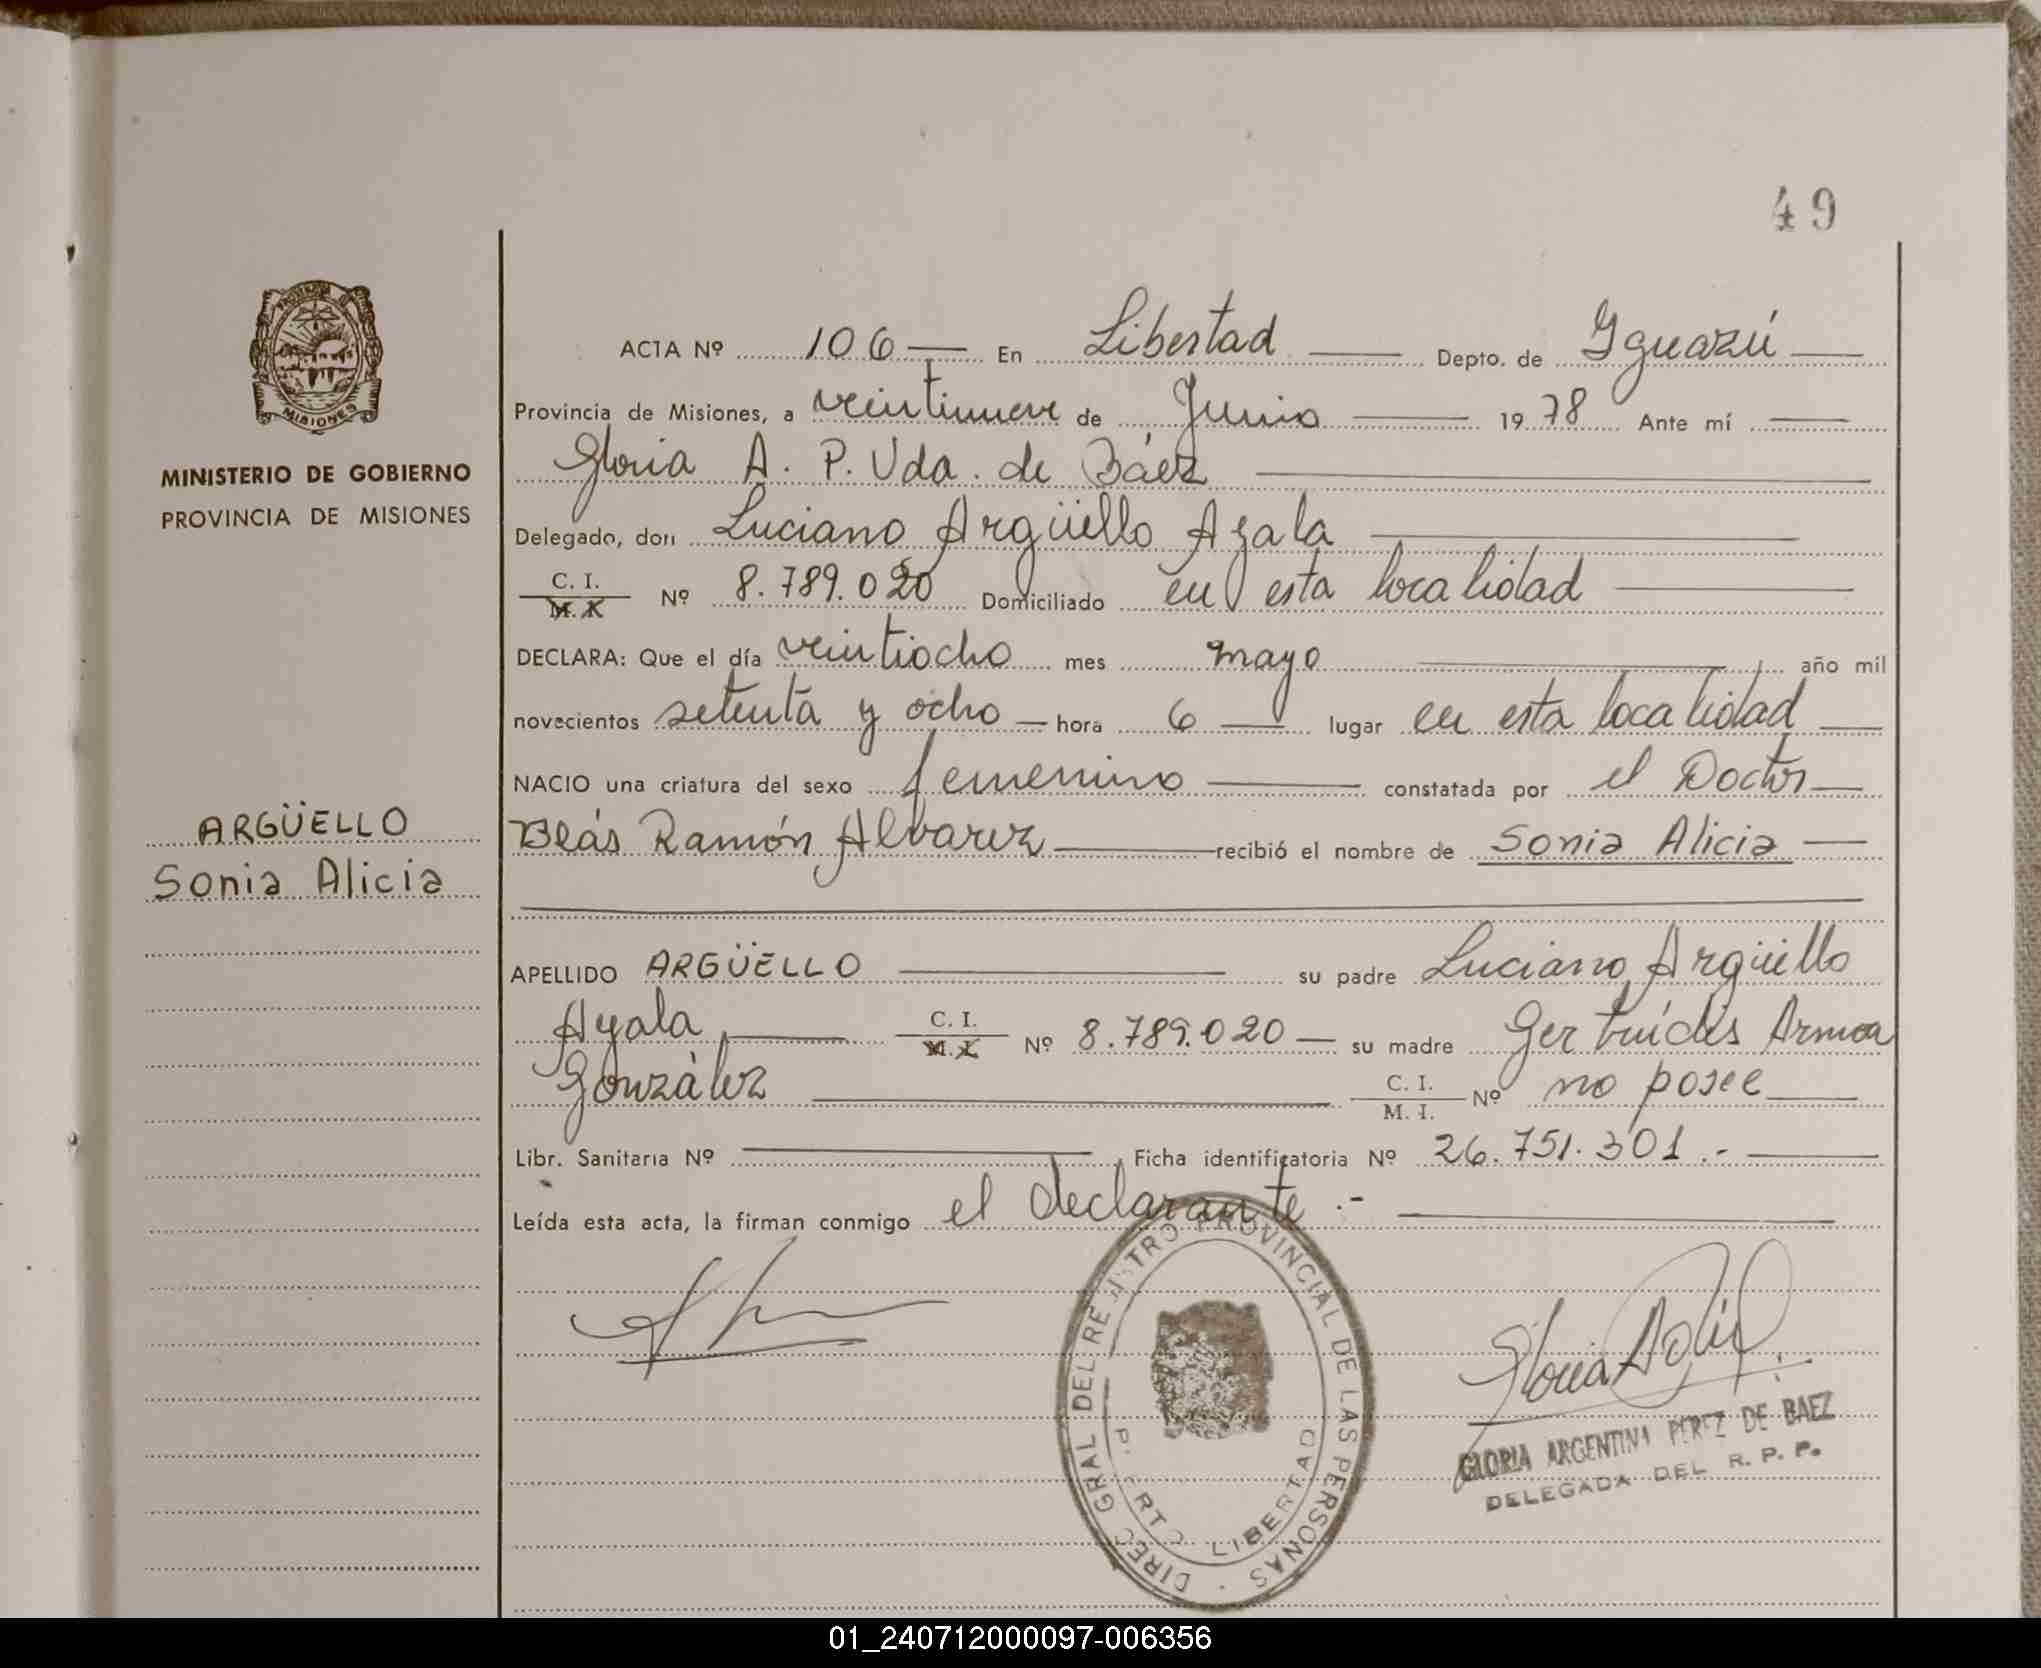 49
PROVINCIA DE
MISIONES
MINISTERIO DE GOBIERNO
PROVINCIA DE MISIONES
ARGÜELLO
Sonia Alicia
ACTA Nº 106 En Libertad Depto. de Iguazú
Provincia de Misiones, a veintinueve de Junio 1978 Ante mí
Gloria A. P. Vda. de Báez
Delegado, don Luciano Argüello Ayala
C. I.
M. I. Nº 8.789.020 Domiciliado en esta localidad
DECLARA: Que el día veintiocho mes mayo año mil
novecientos setenta y ocho hora 6 lugar en esta localidad
NACIO una criatura del sexo femenino constatada por el Doctor
Blás Ramón Alvarez recibió el nombre de Sonia Alicia
APELLIDO ARGÜELLO su padre Luciano Argüello
Ayala C. I. M. I. Nº 8.789.020 su madre Gertruídes Armoa
González C. I. M. I. Nº no posee
Libr. Sanitaria Nº Ficha identificatoria Nº 26.751.301.-
Leída esta acta, la firman conmigo el declarante.-
DIREC GRAL DEL REGISTRO PROVINCIAL DE LAS PERSONAS
PUERTO LIBERTAD
GLORIA ARGENTINA PEREZ DE BAEZ
DELEGADA DEL R. P. P.
01_240712000097-006356